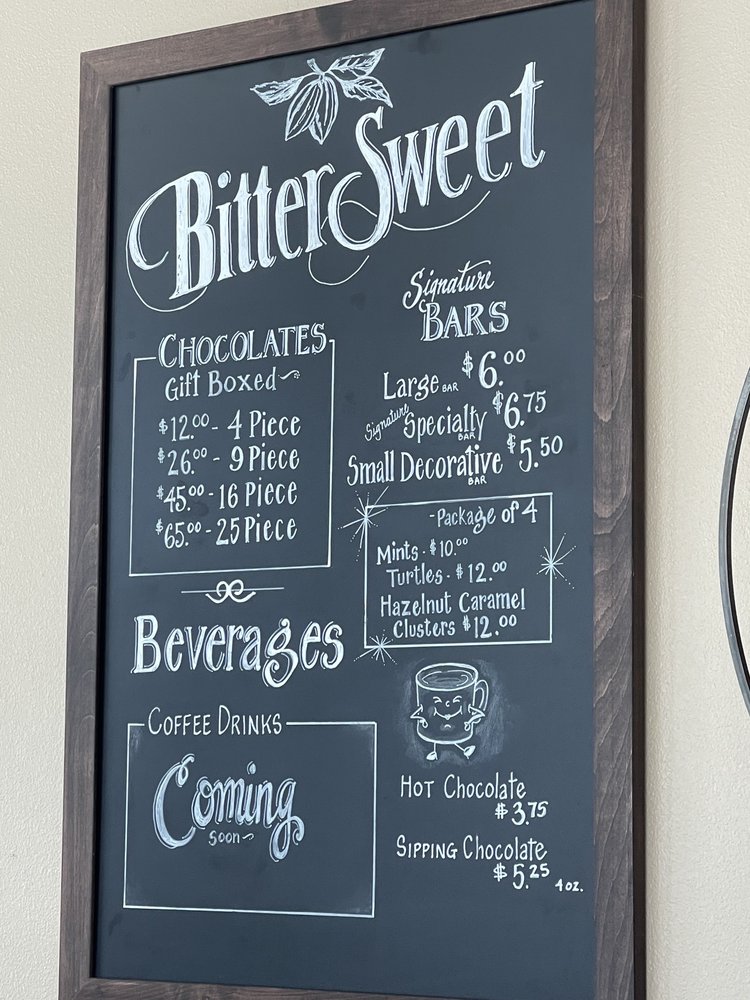 BitterSweet
CHOCOLATES
Gift Boxed
$12.00 - 4 Piece
$26.00 - 9 Piece
$45.00 - 16 Piece
$65.00 - 25 Piece
Signature
BARS
Large BAR $6.00
Signature Specialty BAR $6.75
Small Decorative BAR $5.50
- Package of 4
Mints - $10.00
Turtles - $12.00
Hazelnut Caramel
Clusters $12.00
Beverages
COFFEE DRINKS
Coming
Soon
HOT Chocolate
$3.75
SIPPING Chocolate
$5.25 4oz.